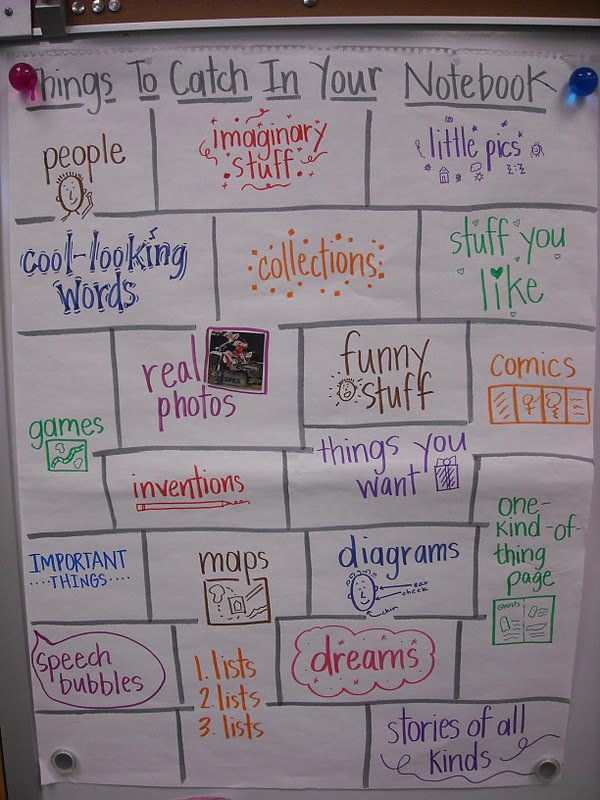 Things To Catch In Your Notebook
people
imaginary
stuff
little pics
cool-looking
words
collections
stuff you
like
games
real
photos
funny
stuff
comics
inventions
things you
want
one-
kind-of-
thing
page
Ghosts
IMPORTANT
THINGS
maps
diagrams
ear
cheek
chin
speech
bubbles
1. lists
2. lists
3. lists
dreams
stories of all
kinds